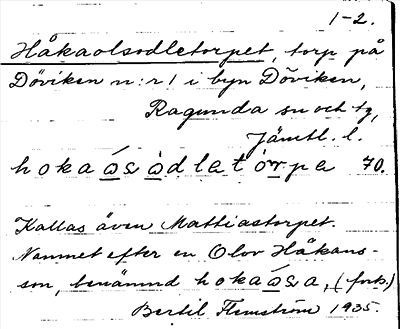 1-2.
Håkaolsodletorpet, torp på
Döviken n:r 1 i byn Döviken,
Ragunda sn och tg,
Jämtl. l.
hokaòsòdletòrpa 70.
Kallas även Mattiastorpet.
Namnet efter en Olov Håkans-
son, benämnd hokaòsa, (forts.)
Bertil Flemström 1935.